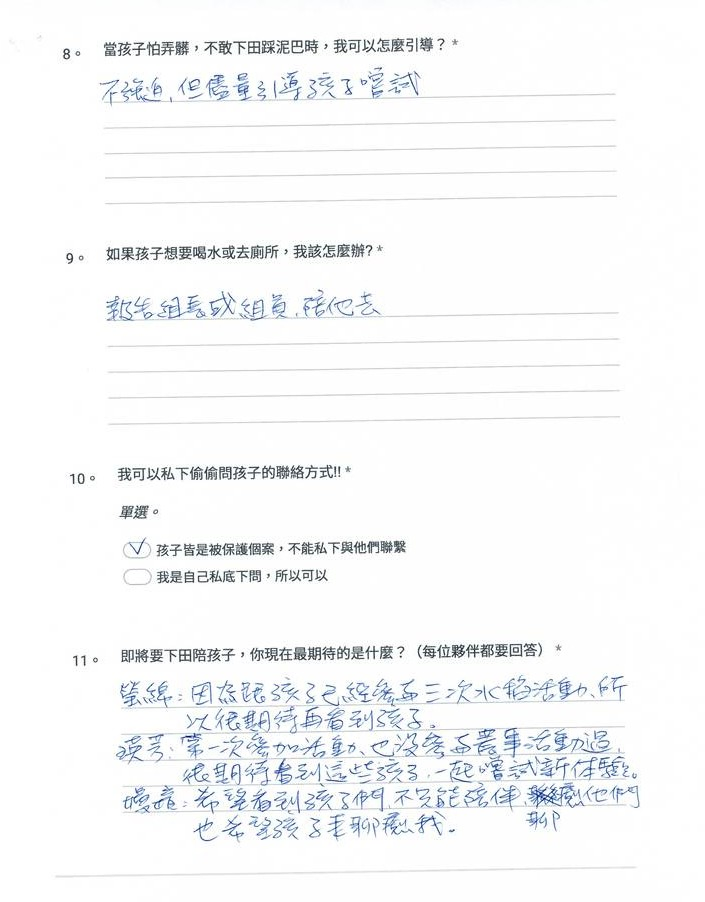 8。 當孩子怕弄髒，不敢下田踩泥巴時，我可以怎麼引導？ *
不強迫，但儘量引導孩子嚐試
9。 如果孩子想要喝水或去廁所，我該怎麼辦? *
報告組長或組員，陪他去
10。 我可以私下偷偷問孩子的聯絡方式!! *
單選。
孩子皆是被保護個案，不能私下與他們聯繫
我是自己私底下問，所以可以
11。 即將要下田陪孩子，你現在最期待的是什麼？（每位夥伴都要回答） *
瑩綿：因為跟孩子已經參與三次水稻活動、所
以很期待再看到孩子。
瑛芳：第一次參加活動、也沒參與農事活動過，
很期待看到這些孩子，一起嚐試新体驗。
：希望看到孩子們，不只能陪伴 療癒他們
也希望孩子來聊癒我。 聊